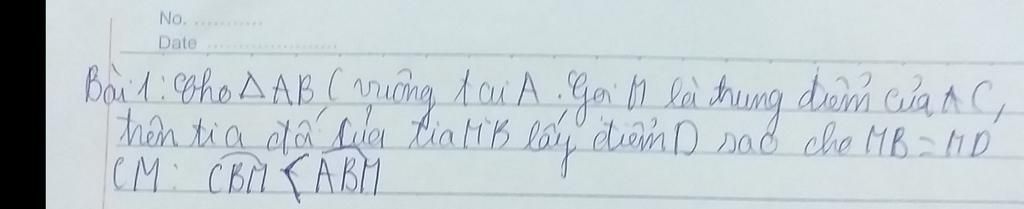 No. ............
Date .....................
Bài 1: Cho Δ ABC vuông tại A. Gọi M là trung điểm của AC,
trên tia đối của tia MB lấy điểm D sao cho MB = MD
CM: CBM < ABM